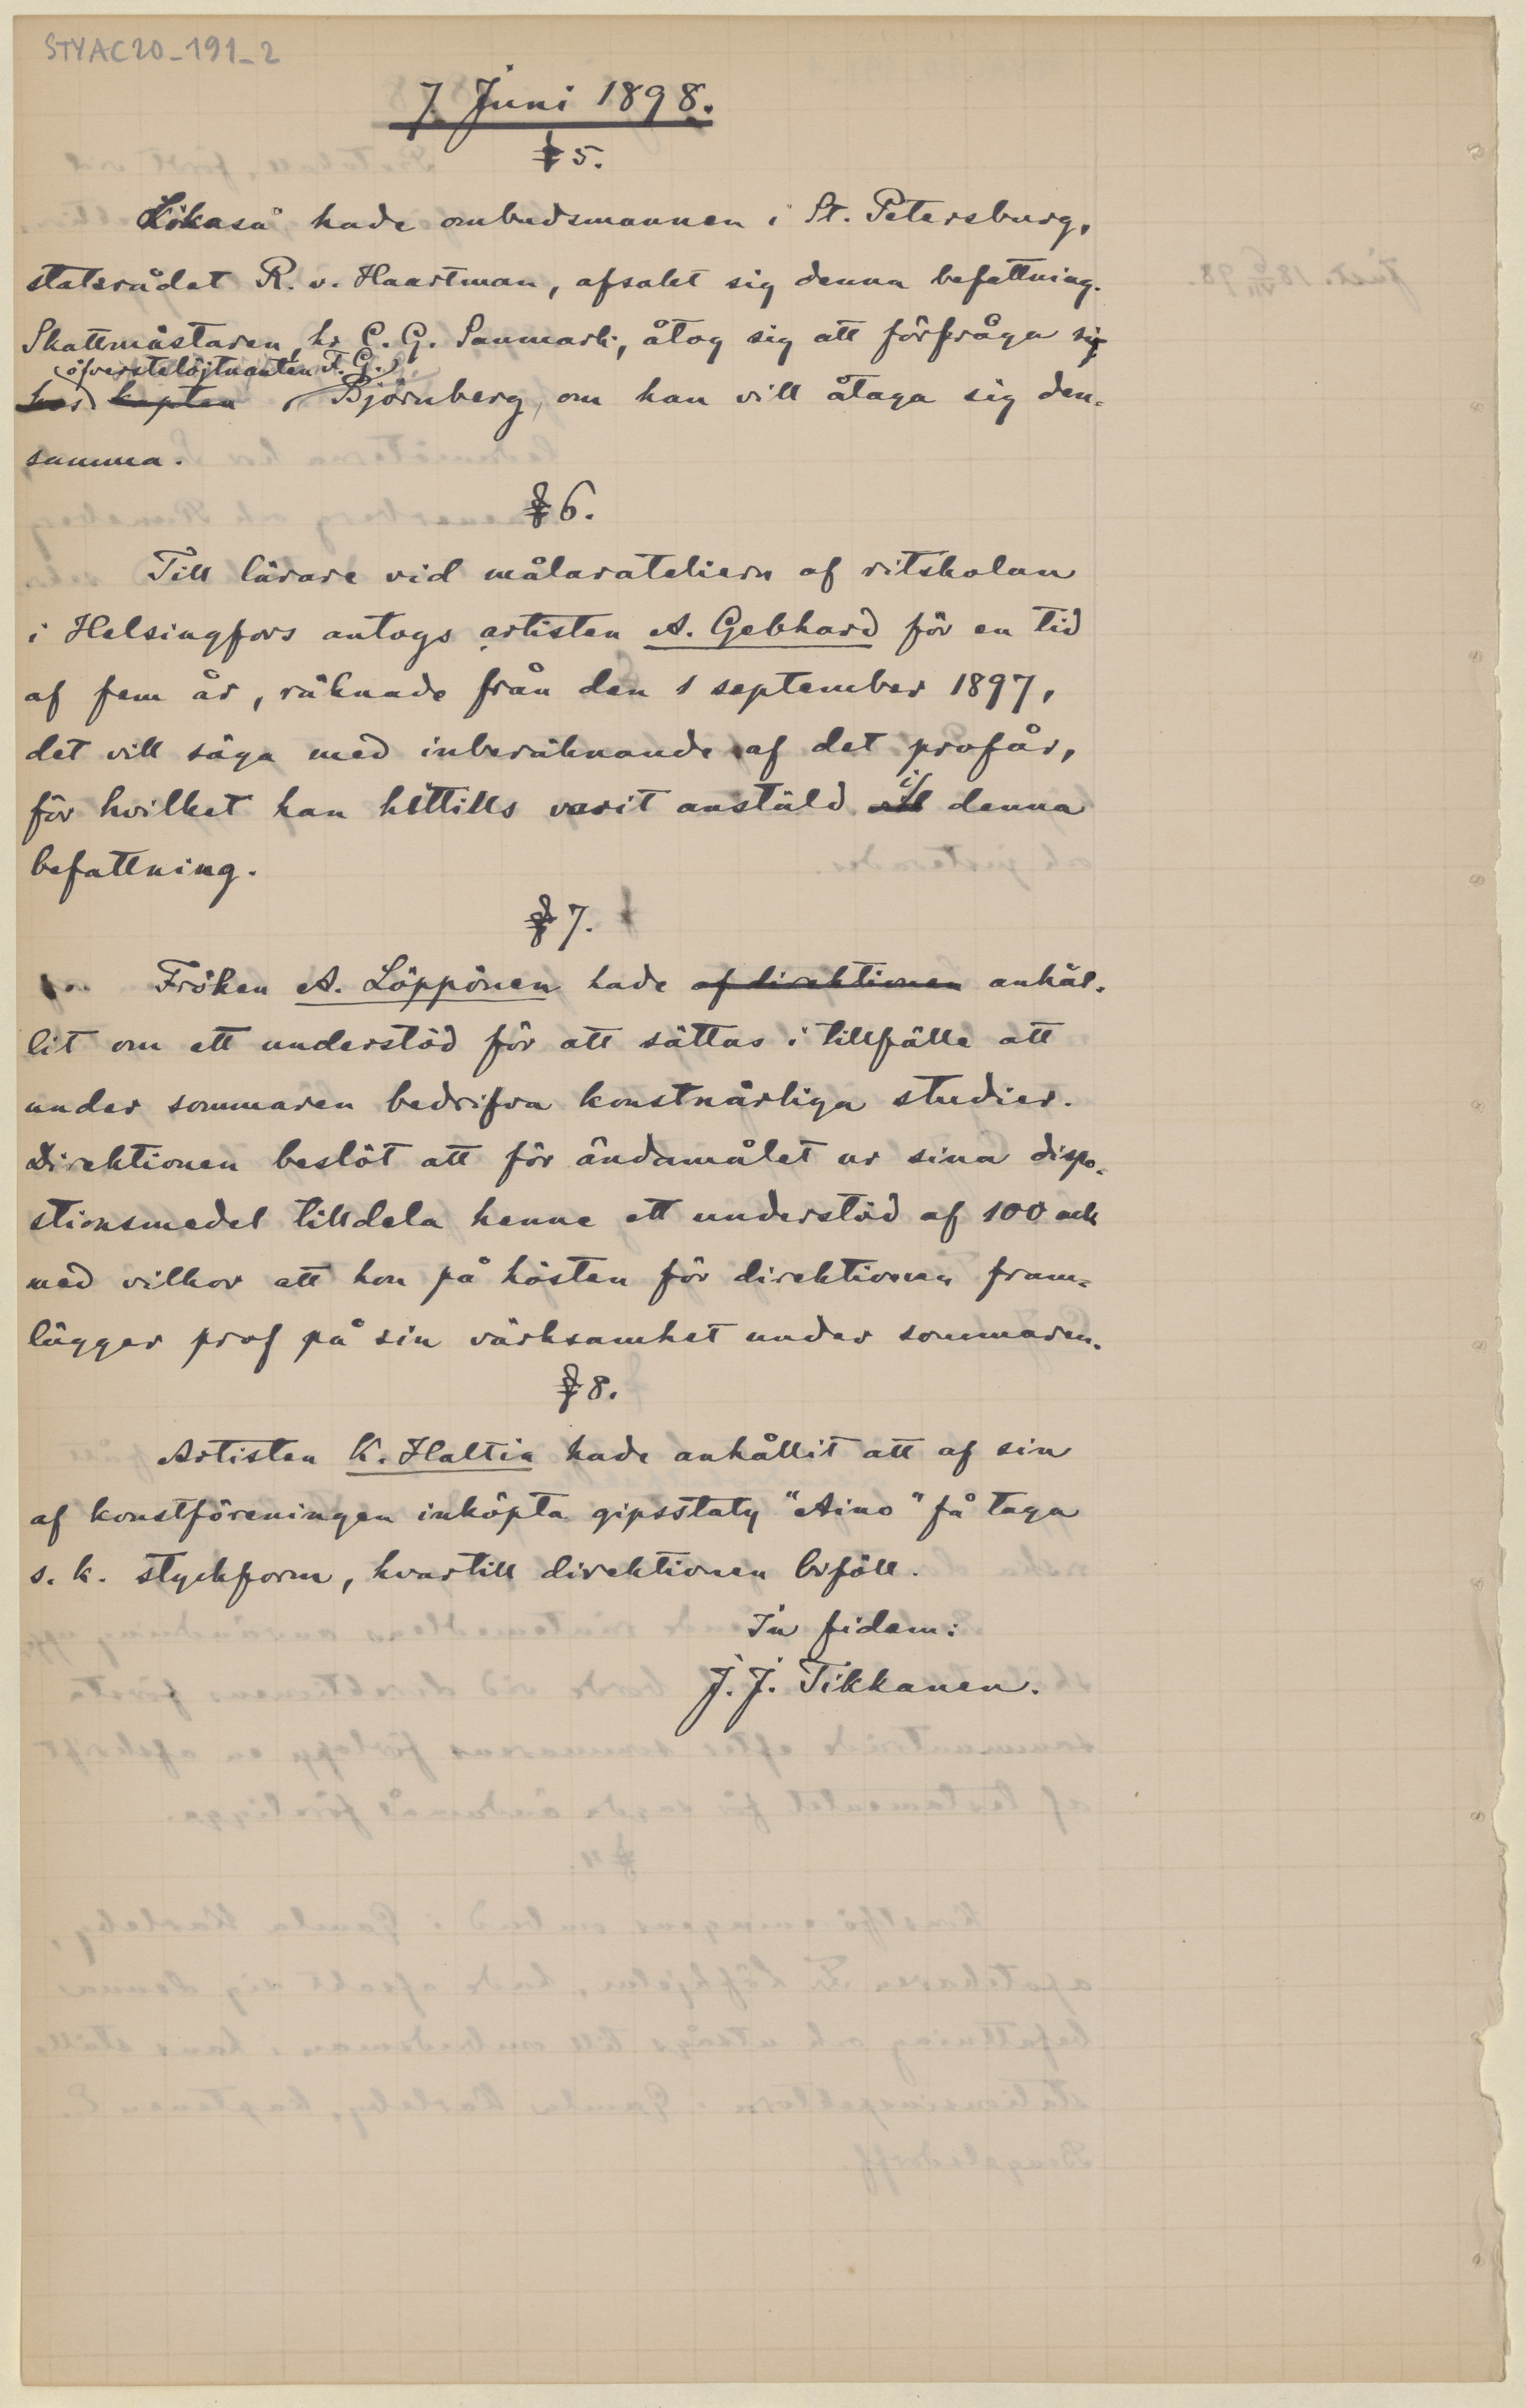 STYAC20_191_2
7 Juni 1898.
§ 5.
Likaså hade ombudsmannen i St. Petersburg,
statsrådet R. v. Haartman, afsakt sig denna befattning.
Skattmästaren, hr C. G. Sanmark, åtog sig att förfråga sig
öfverstelöjtnanten F. G.
hos kapten Björnberg, om han vill åtaga sig den-
samma.
§ 6.
Till lärare vid målarateliern af ritskolan
i Helsingfors antogs artisten A. Gebhard för en tid
af fem år, räknade från den 1 september 1897,
det vill säga med inberäknande af det profår,
för hvilket han hittills varit anstäld i denna
befattning.
§ 7.
Fröken A. Löppönen hade af direktionen anhål-
lit om ett understöd för att sättas i tillfälle att
under sommaren bedrifva konstnärliga studier.
Direktionen beslöt att för ändamålet ur sina dispo-
stionsmedel tilldela henne ett understöd af 100 mk
med vilkor att hon på hösten för direktionen fram-
lägger prof på sin värksamhet under sommaren.
§ 8.
Artisten K. Haltia hade anhållit att af sin
af konstföreningen inköpta gipsstaty "Aino" få taga
s. k. styckform, hvartill direktionen biföll.
In fidem:
J. J. Tikkanen.